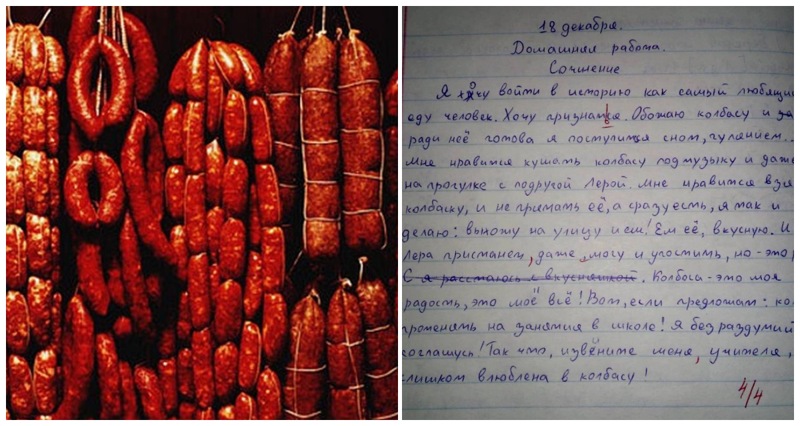 18 декабря.
Домашняя работа.
Сочинение
Я хочу войти в историю как самый любящий
еду человек. Хочу признатся. Обожаю колбасу и
ради неё готова я поступится сном, гулянием...
Мне нравится кушать колбасу под музыку и даже
на прогулке с подругой Лерой. Мне нравится взя
колбаску, и не прятать её, а сразу есть, я так и
делаю: выхожу на улицу и ем! Ем её, вкусную. И
Лера пристанет, даже могу и угостить, но - это
С я расстаюсь с вкусняшкой. Колбаса - это моя
радость, это моё всё! Вот, если предложат: кол
променять на занятия в школе! Я без раздумий
соглашусь! Так что, извёните меня, учителя,
слишком влюблена в колбасу!
4/4